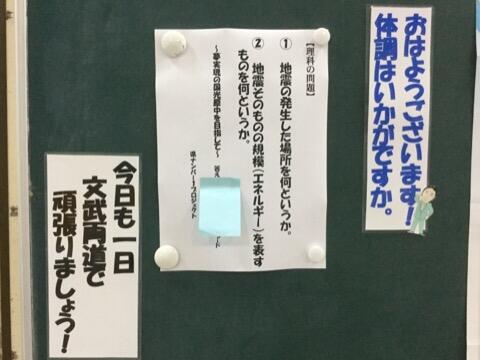 おはようございます！
体調はいかがですか。
【理科の問題】
① 地震の発生した場所を何というか。
② 地震そのものの規模（エネルギー）を表す
ものを何というか。
～夢実現の国光原中を目指して～
県ナンバー１プロジェクト
今日も一日
文武両道で
頑張りましょう！